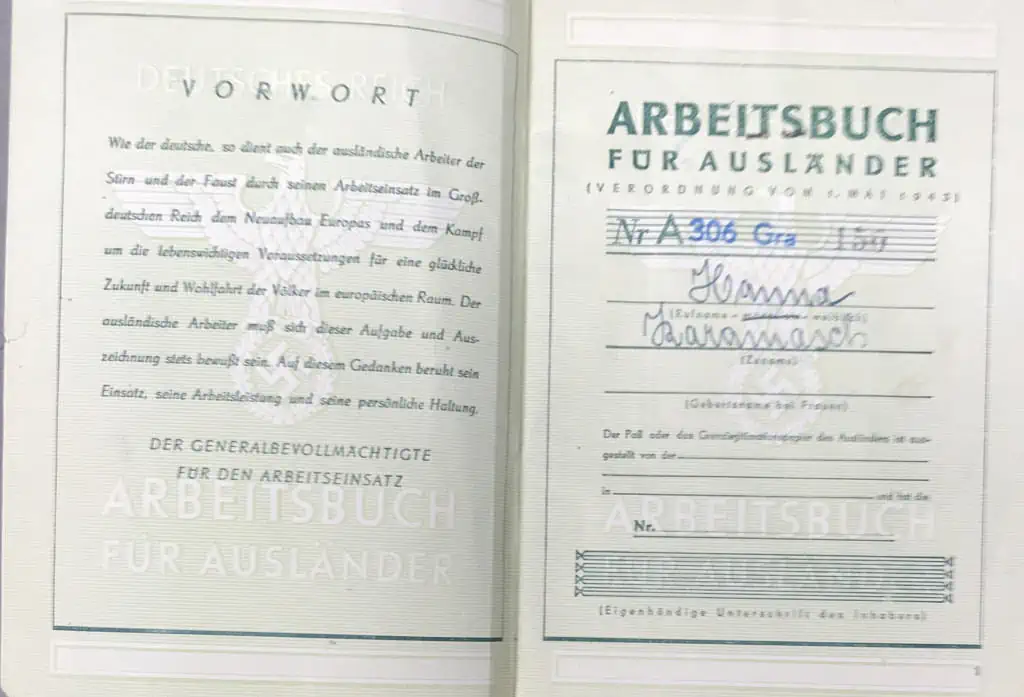 DEUTSCHES REICH
VORWORT
Wie der deutsche, so dient auch der ausländische Arbeiter der
Stirn und der Faust durch seinen Arbeitseinsatz im Groß-
deutschen Reich dem Neuaufbau Europas und dem Kampf
um die lebenswichtigen Voraussetzungen für eine glückliche
Zukunft und Wohlfahrt der Völker im europäischen Raum. Der
ausländische Arbeiter muß sich dieser Aufgabe und Aus-
zeichnung stets bewußt sein. Auf diesem Gedanken beruht sein
Einsatz, seine Arbeitsleistung und seine persönliche Haltung.
DER GENERALBEVOLLMÄCHTIGTE
FÜR DEN ARBEITSEINSATZ
ARBEITSBUCH
FÜR AUSLÄNDER
ARBEITSBUCH
FÜR AUSLÄNDER
(VERORDNUNG VOM 1. MAI 1943)
Nr A 306 Gra /156
Hanna
(Rufname - männlich - weiblich)
Karamasch
(Zuname)
(Geburtsname bei Frauen)
Der Paß oder das Grenzlegitimationspapier des Ausländers ist aus-
gestellt von der
in und hat die
ARBEITSBUCH
Nr.
FÜR AUSLÄND
(Eigenhändige Unterschrift des Inhabers)
1